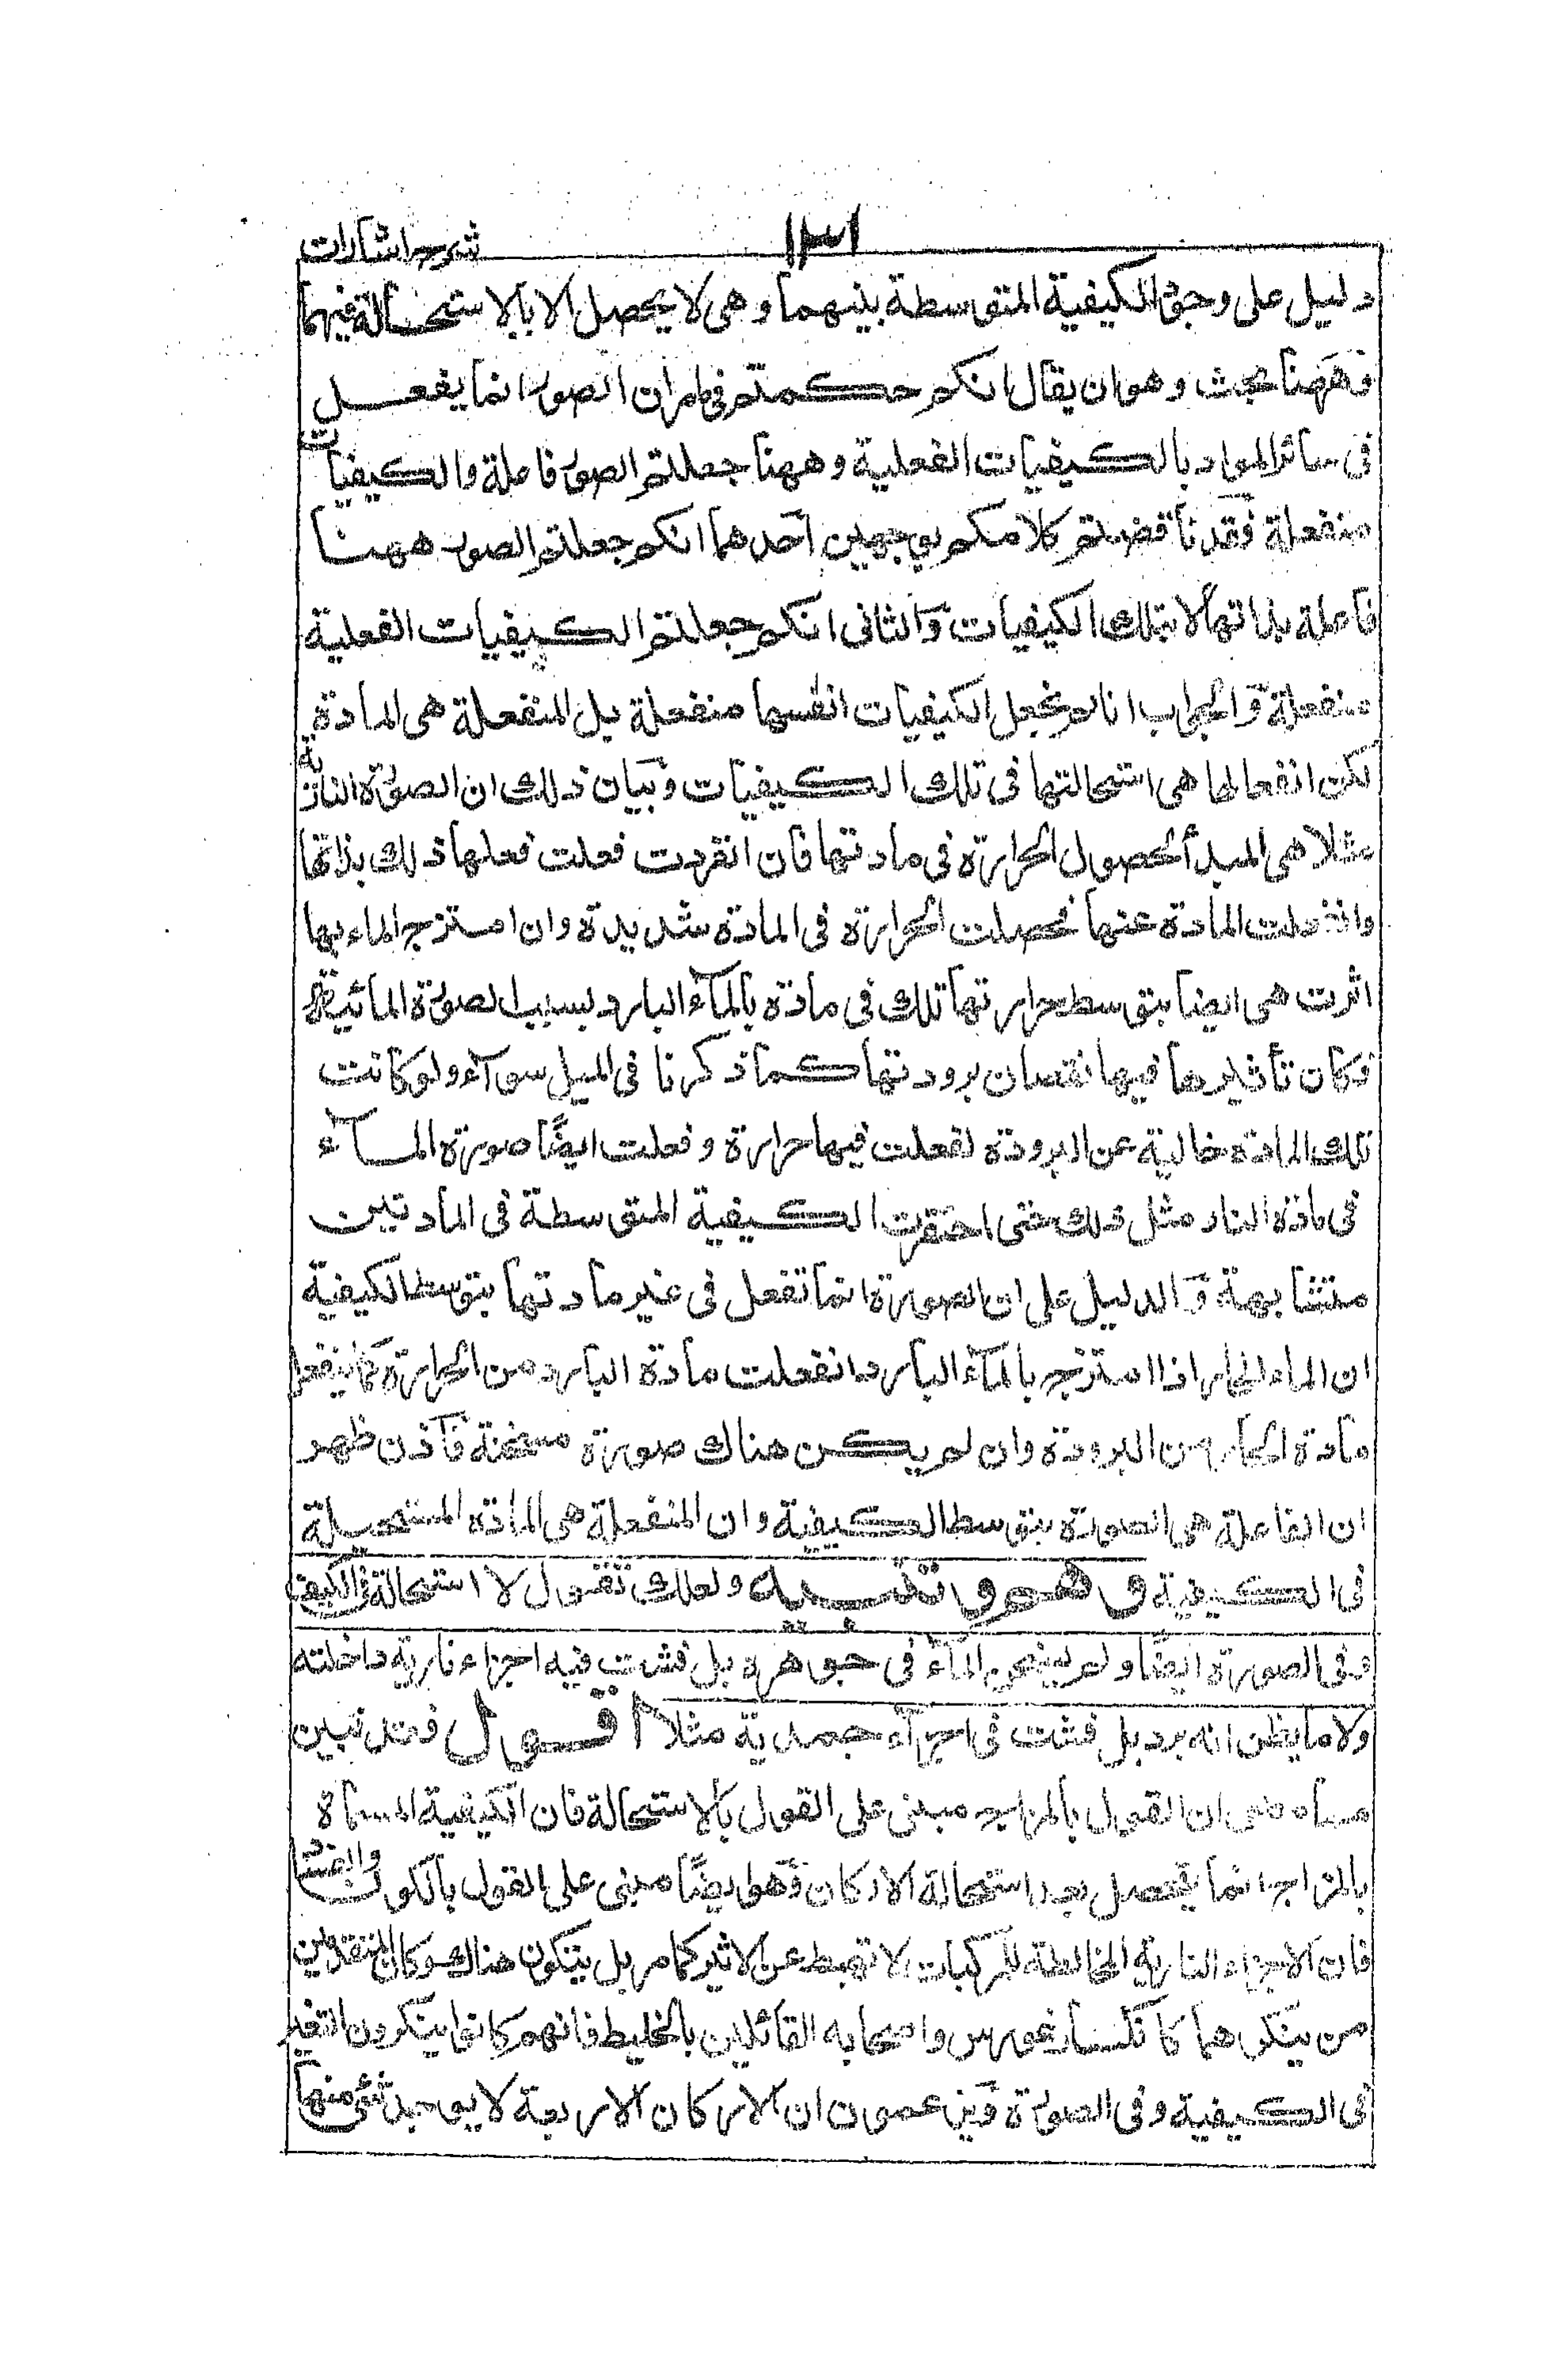 ١٣١
شرح اشارات
دليل على وجود الكيفية المتوسطة بينهما وهى لا يحصل الا بالاستحالة فيهما
فههنا بحث وهو ان يقال انكم حكمتم فيما مر ان الصور انما يفعل
فى سائر المواد بالكيفيات الفعلية وههنا جعلتم الصور فاعلة والكيفيات
منفعلة فقد ناقضتم كلامكم بوجهين احدهما انكم جعلتم الصور ههنا
فاعلة بذاتها لا بتلك الكيفيات والثانى انكم جعلتم الكيفيات الفعلية
منفعلة والجواب انا لم نجعل الكيفيات انفسها منفعلة بل المنفعلة هى المادة
لكن انفعالها هى استحالتها فى تلك الكيفيات وبيان ذلك ان الصورة النارية
مثلا هى المبدأ لحصول الحرارة فى مادتها فان انفردت فعلت فعلها ذلك بذاتها
وانفعلت المادة عنها فحصلت الحرارة فى المادة شديدة وان امتزج الماء بها
اثرت هى ايضا بتوسط حرارتها تلك فى مادة بالماء البارد بسبب الصورة المائية
فكان تأثيرها فيها نقصان برودتها كما ذكرنا فى الميل سواء ولو كانت
تلك المادة خالية عن البرودة لفعلت فيها حرارة وفعلت ايضًا صورة الماء
فى مادة النار مثل ذلك حتى استقرت الكيفية المتوسطة فى المادتين
متشابهة والدليل على ان الصورة انما تفعل فى غير مادتها بتوسط الكيفية
ان الماء الحار اذا امتزج بالماء البارد انفعلت مادة البارد من الحرارة كما ينفعل
مادة الحار من البرودة وان لم يكن هناك صورة مسخنة فاذن ظهر
ان الفاعلة هى الصورة بتوسط الكيفية وان المنفعلة هى المادة المستحيلة
فى الكيفية وهم وتنبيه ولعلك تقول لا استحالة فى الكيف
وفى الصورة ايضًا ولم يسخن الماء فى جوهره بل فشت فيه اجزاء نارية داخلته
ولا ما يظن انه برد بل فشت فى اجزاء جمدية مثلا اقول قد تبين
مما مضى ان القول بالمزاج مبنى على القول بالاستحالة فان الكيفية المسماة
بالمزاج انما يحصل بعد استحالة الاركان وهو ايضًا مبنى على القول بالكون والفساد
فان الاجزاء النارية المخالطة للمركبات لا تهبط عن الاثير كما مر بل يتكون هناك وكان من المتقدمين
من ينكرهما كانكساغورس واصحابه القائلين بالخليط فانهم كانوا ينكرون التغير
فى الكيفية وفى الصورة ويزعمون ان الاركان الاربعة لا يوجد شئ منها